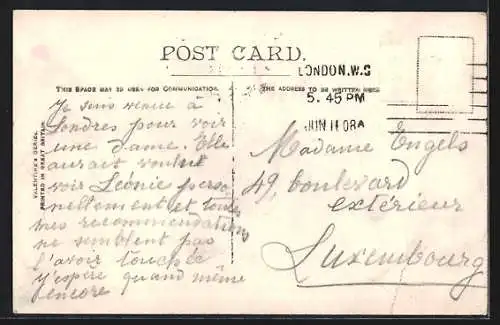 POST CARD.
LONDON.W.C
5.45 PM
JUN 11 08A
THIS SPACE MAY BE USED FOR COMMUNICATION.
THE ADDRESS TO BE WRITTEN HERE
VALENTINE'S SERIES.
PRINTED IN GREAT BRITAIN.
Je suis venue à
Londres pour voir
une dame. Elle
aurait voulu
voir Léonie perso
nellement et toutes
mes recommendations
ne semblent pas
l'avoir touchée
J'espère quand même
encore
Madame Engels
49, boulevard
extérieur
Luxembourg